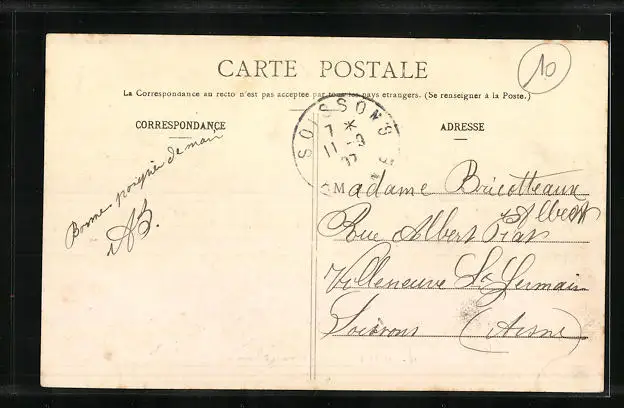 CARTE POSTALE
10
La Correspondance au recto n'est pas acceptée par tous les pays étrangers. (Se renseigner à la Poste.)
CORRESPONDANCE
ADRESSE
SOISSONS
7 *
11 - 9
07
Bonne poignée de main
AB.
Madame Bricotteaux
Albert
Rue Albert
Villeneuve St Germain
Soissons (Aisne)